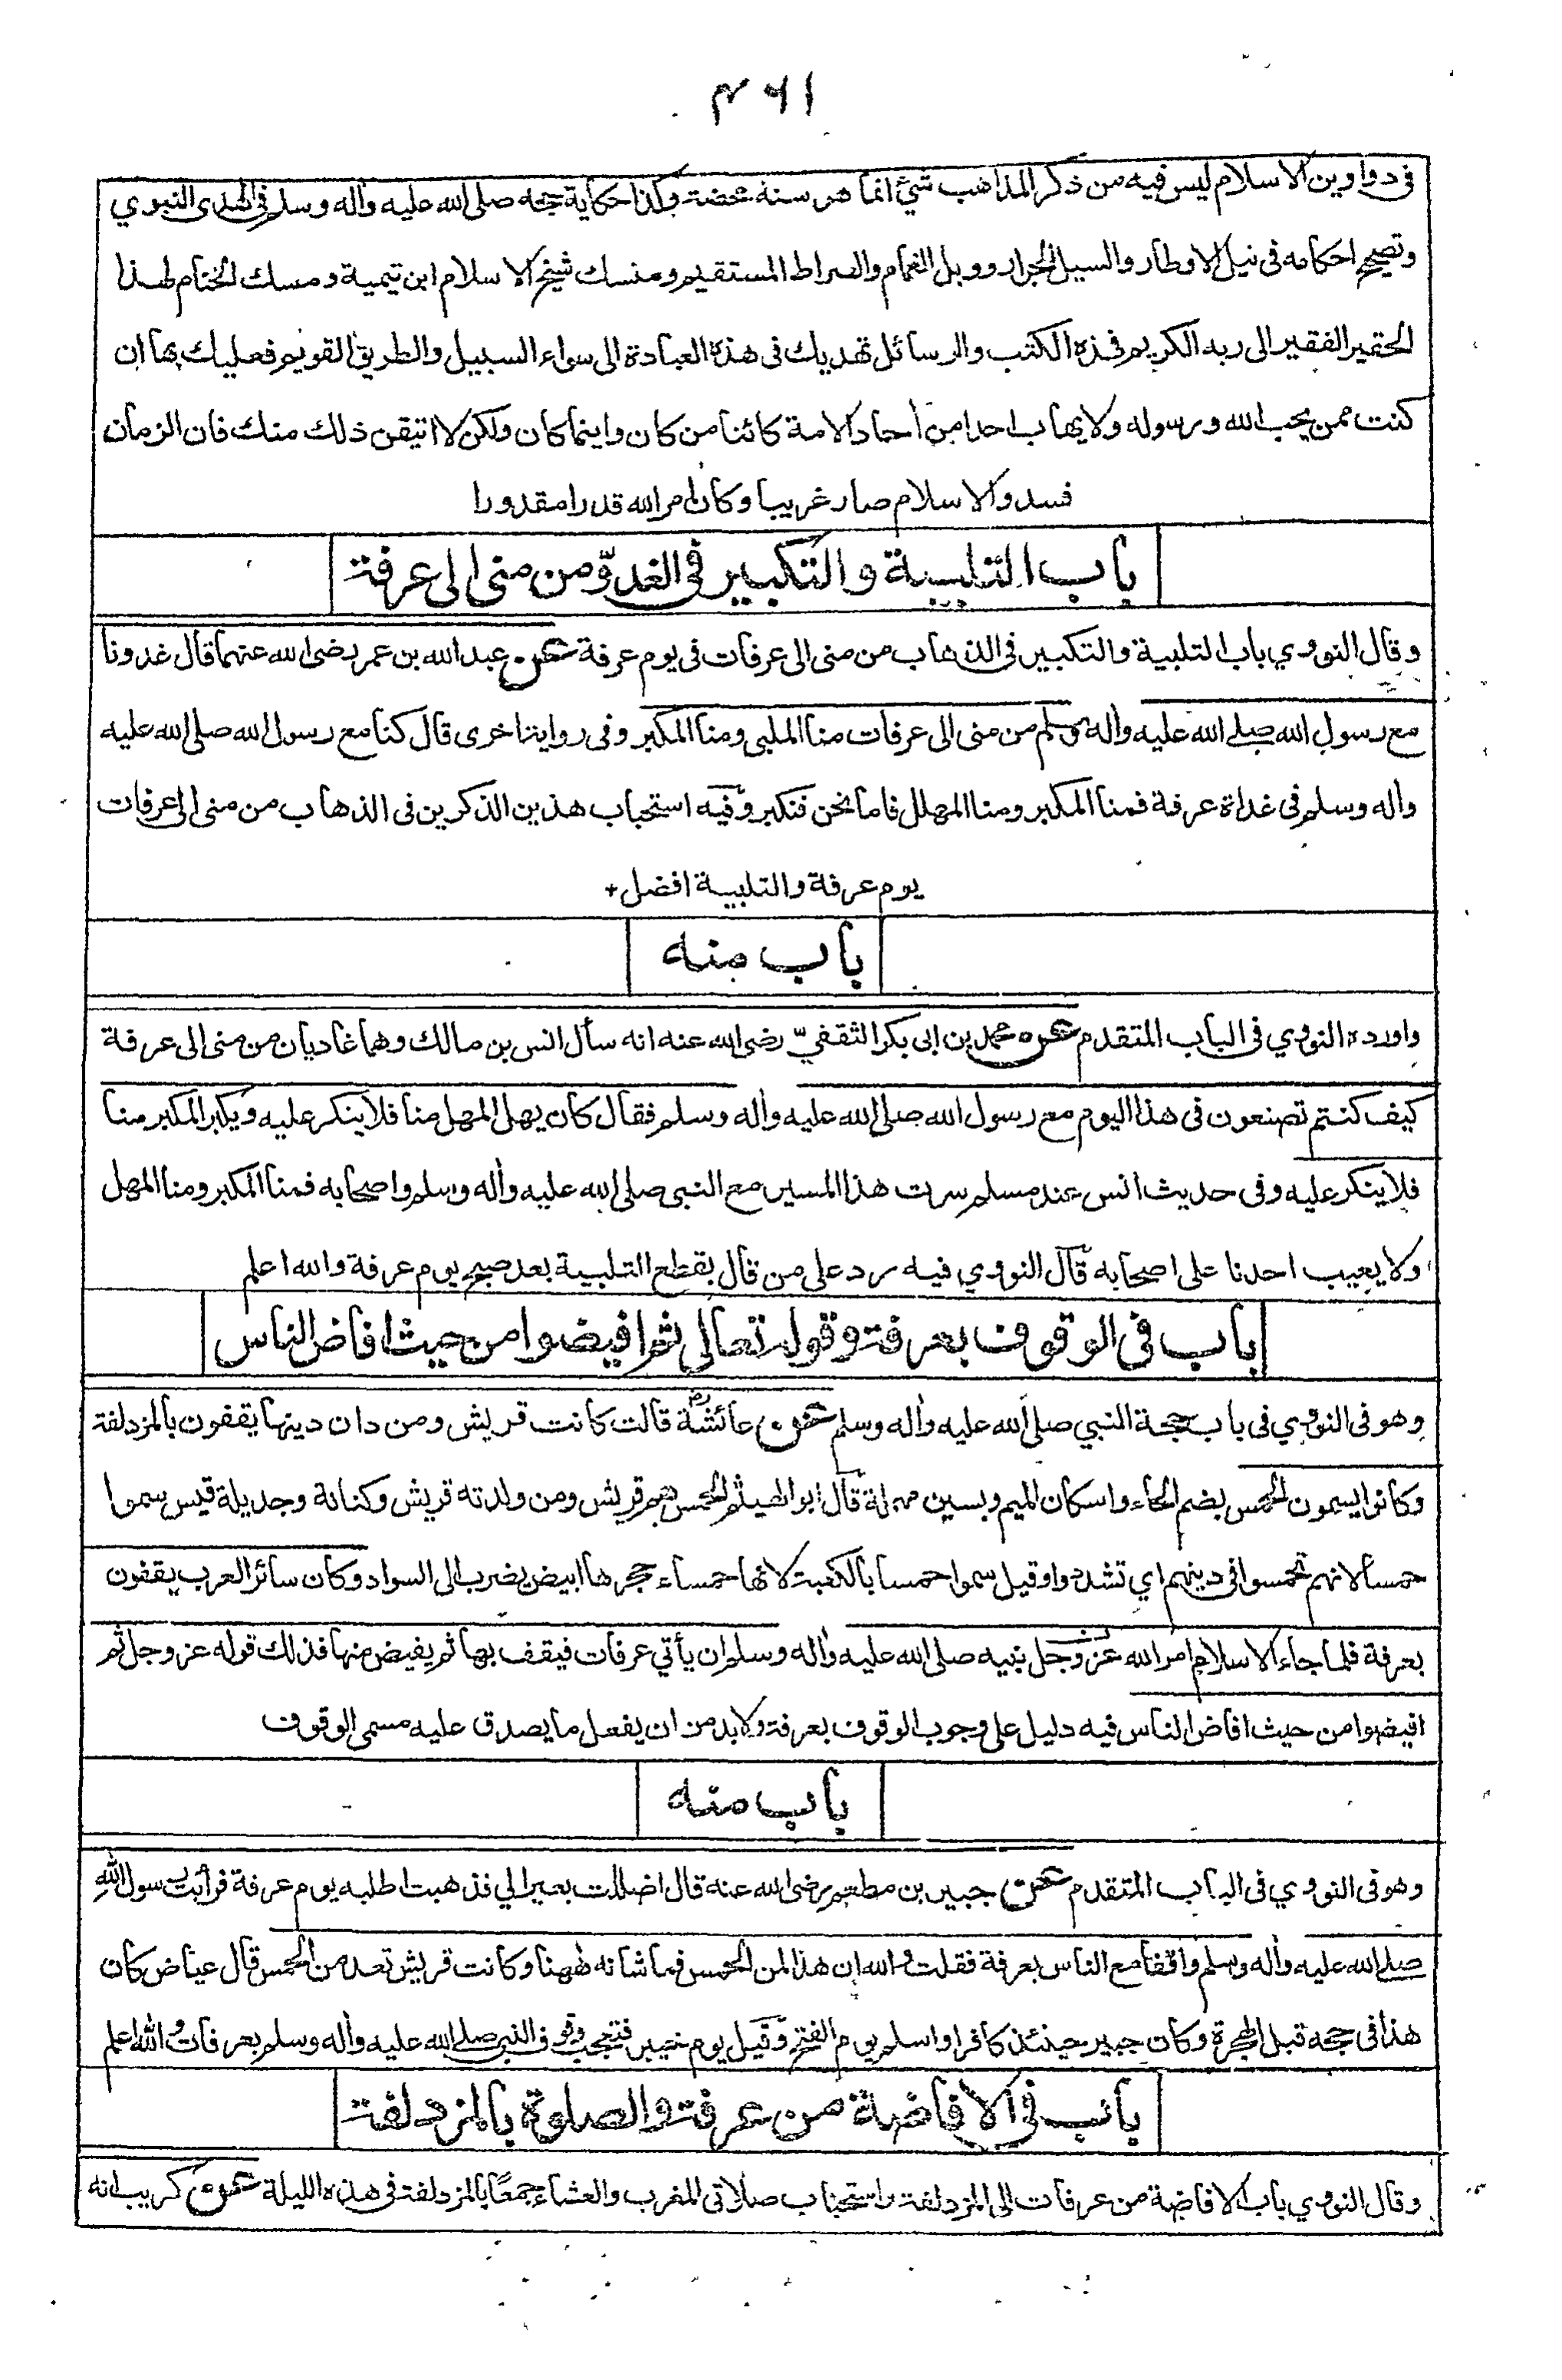 ٤٦١
في دواوين الاسلام ليس فيه من ذكر المذاهب شئ انما هى سنة محضة وكذا حكاية حجه صلى الله عليه واٰله وسلم فى الهدى النبوي
وتصحيح احكامه فى نيل الاوطار والسيل الجرار ووبل الغمام والصراط المستقيم ومنسك شيخ الاسلام ابن تيمية ومسك الختام لهذا
الحقير الفقير الى ربه الكريم فهذه الكتب والرسائل تهديك فى هذه العبادة الى سواء السبيل والطريق القويم فعليك بها ان
كنت ممن يحب الله ورسوله ولا يهاب احدا من اٰحاد الامة كائنا من كان واينما كان ولكن لا اتيقن ذلك منك فان الزمان
فسد والاسلام صار غريبا وكان امر الله قدرا مقدورا
باب التلبية والتكبير فى الغدوّ من منى الى عرفة
وقال النووي باب التلبية والتكبير فى الذهاب من منى الى عرفات فى يوم عرفة عن عبد الله بن عمر رضى الله عنهما قال غدونا
مع رسول الله صلى الله عليه واٰله وسلم من منى الى عرفات منا الملبى ومنا المكبر وفى رواية اخرى قال كنا مع رسول الله صلى الله عليه
واٰله وسلم فى غداة عرفة فمنا المكبر ومنا المهلل فاما نحن فنكبر وفيه استحباب هذين الذكرين فى الذهاب من منى الى عرفات
يوم عرفة والتلبية افضل +
باب منه
واورده النووي فى الباب المتقدم عن محمد بن ابى بكر الثقفيّ رضى الله عنه انه سأل انس بن مالك وهما غاديان من منى الى عرفة
كيف كنتم تصنعون فى هذا اليوم مع رسول الله صلى الله عليه واٰله وسلم فقال كان يهل المهل منا فلا ينكر عليه ويكبر المكبر منا
فلا ينكر عليه وفى حديث انس عند مسلم سرت هذا المسير مع النبى صلى الله عليه واٰله وسلم واصحابه فمنا المكبر ومنا المهل
ولا يعيب احدنا على اصحابه قال النووي فيه رد على من قال بقطع التلبية بعد صبح يوم عرفة والله اعلم
باب فى الوقوف بعرفة وقوله تعالى ثم افيضوا من حيث افاض الناس
وهو فى النووي فى باب حجة النبي صلى الله عليه واٰله وسلم عن عائشةؓ قالت كانت قريش ومن دان دينها يقفون بالمزدلفة
وكانوا يسمون الحمس بضم الحاء واسكان الميم وبسين مهملة قال ابو الهيثم الحمس هم قريش ومن ولدته قريش وكنانة وجديلة قيس سموا
حمسا لانهم تحمسوا فى دينهم اي تشددوا وقيل سموا حمسا بالكعبة لانها حمساء حجرها ابيض يضرب الى السواد وكان سائر العرب يقفون
بعرفة فلما جاء الاسلام امر الله عز وجل نبيه صلى الله عليه واٰله وسلم ان يأتي عرفات فيقف بها ثم يفيض منها فذلك قوله عز وجل ثم
افيضوا من حيث افاض الناس فيه دليل على وجوب الوقوف بعرفة ولا بد من ان يفعل ما يصدق عليه مسمى الوقوف
باب منه
وهو فى النووي فى الباب المتقدم عن جبير بن مطعم رضى الله عنه قال اضللت بعيرا لي فذهبت اطلبه يوم عرفة فرأيت رسول الله
صلى الله عليه واٰله وسلم واقفا مع الناس بعرفة فقلت والله ان هذا لمن الحمس فما شانه ههنا وكانت قريش تعد من الحمس قال عياض كان
هذا فى حجه قبل الهجرة وكان جبير حينئذ كافرا واسلم يوم الفتح وقيل يوم خيبر فتعجب وقوف النبى صلى الله عليه واٰله وسلم بعرفات والله اعلم
باب فى الافاضة من عرفة والصلوة بالمزدلفة
وقال النووي باب الافاضة من عرفات الى المزدلفة واستحباب صلاتى المغرب والعشاء جمعًا بالمزدلفة فى هذه الليلة عن كريب انه